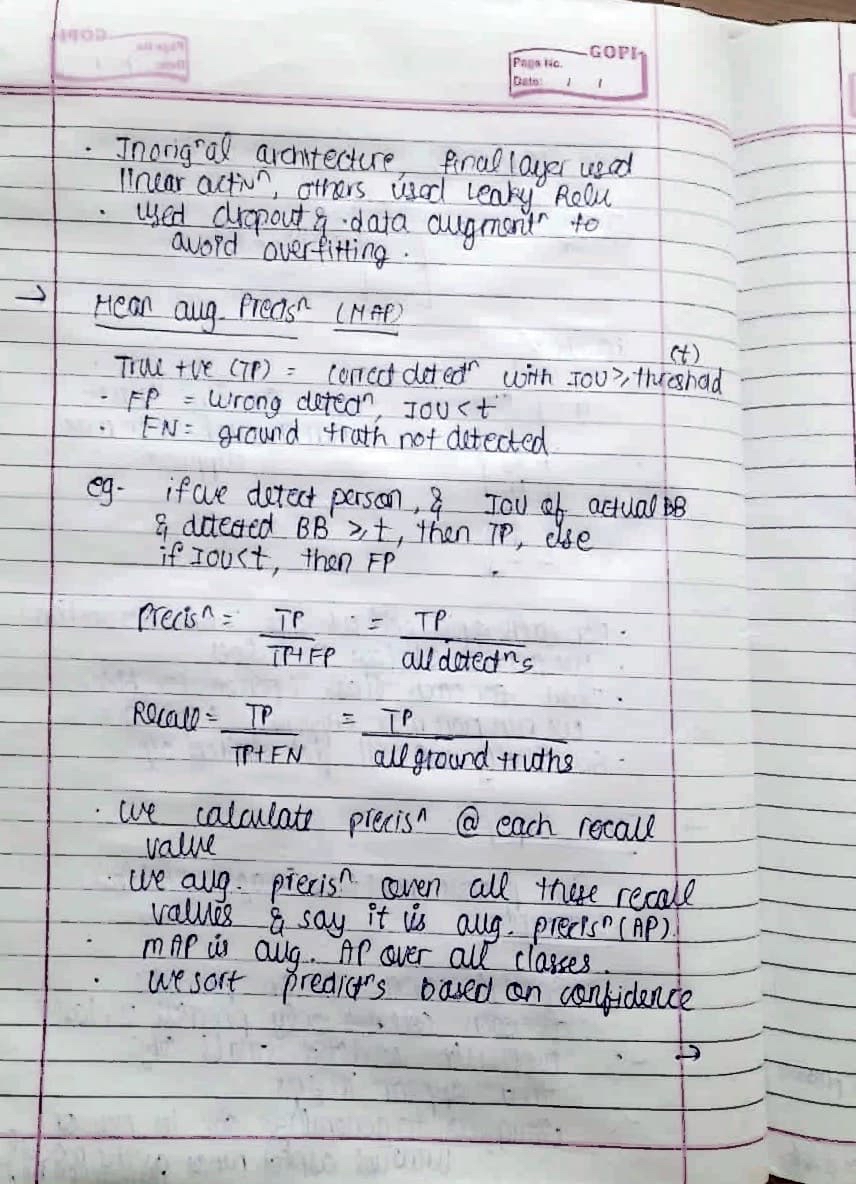 GOPI
Page No.
Date: / /
· In orig^nal architecture, final layer used
linear activ^n, others used Leaky Relu
· used dropout & data augment^n to
avoid overfitting.
→ Mean avg. Precis^n (MAP)
(t)
True +ve (TP) = correct detect^n with IOU ≥ threshold
· FP = wrong detec^n, IOU < t
· FN = ground truth not detected
eg- if we detect person, & IOU of actual BB
& detected BB ≥ t, then TP, else
if IOU < t, then FP
Precis^n = TP = TP
TP+FP all detect^ns
Recall = TP = TP
TP+FN all ground truths
· we calculate precis^n @ each recall
value
· we avg. precis^n over all these recall
values & say it is avg. precis^n (AP).
· mAP is avg. AP over all classes.
· we sort predict^ns based on confidence
→